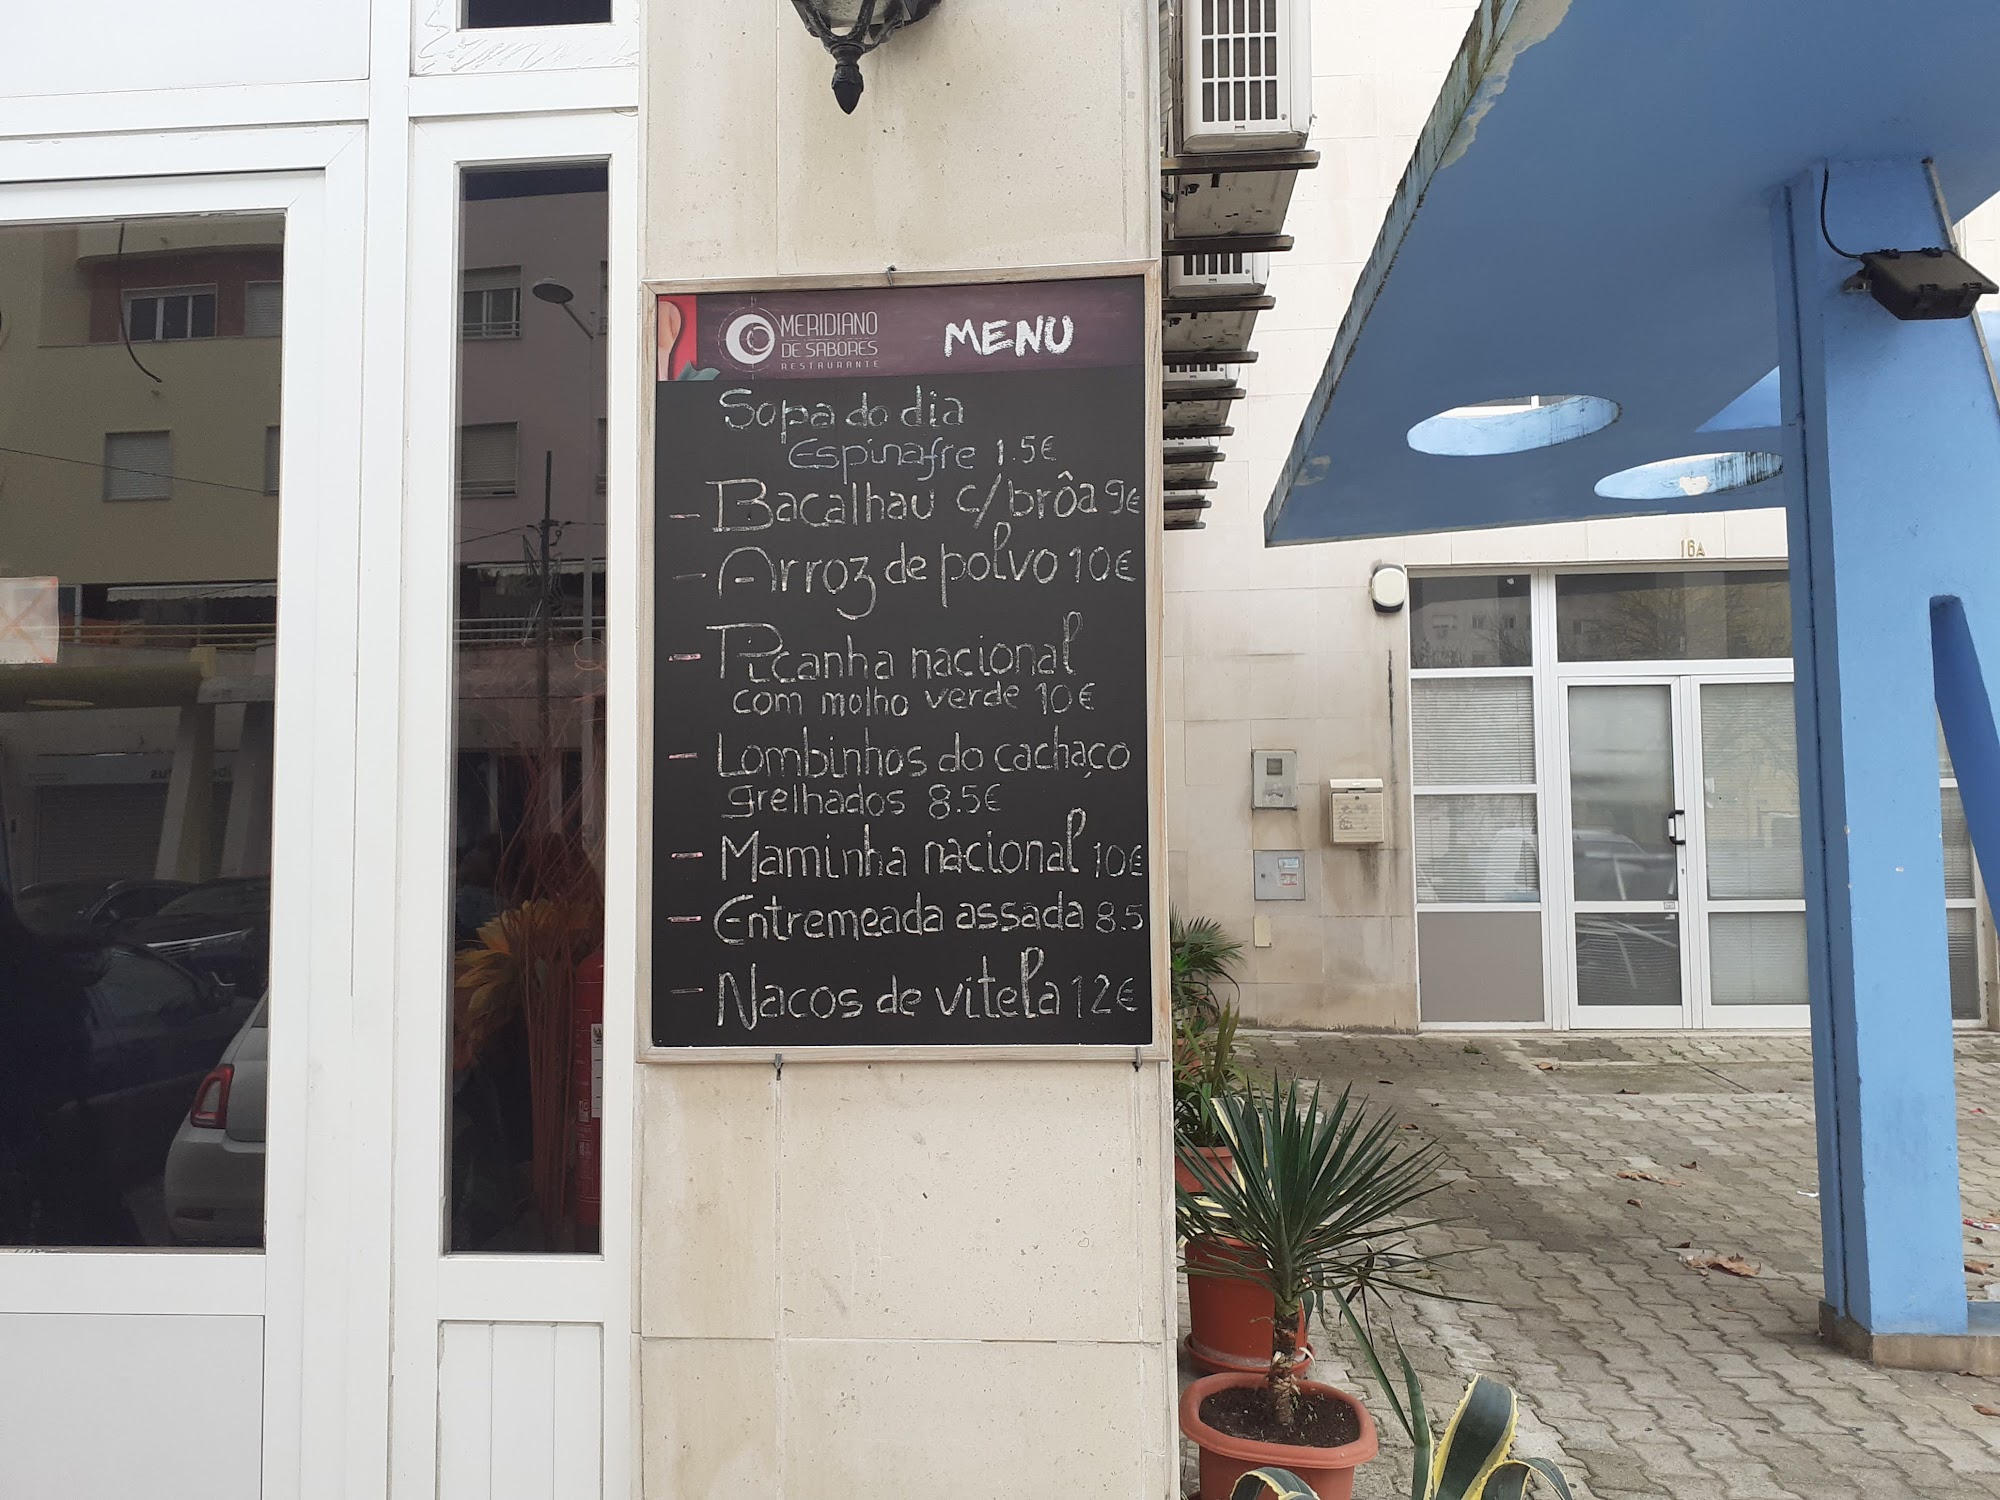 MERIDIANO
DE SABORES
RESTAURANTE
MENU
Sopa do dia
Espinafre 1.5€
- Bacalhau c/ brôa 9€
- Arroz de polvo 10€
- Picanha nacional
com molho verde 10€
- Lombinhos do cachaço
grelhados 8.5€
- Maminha nacional 10€
- Entremeada assada 8.5
- Nacos de vitela 12€
16A